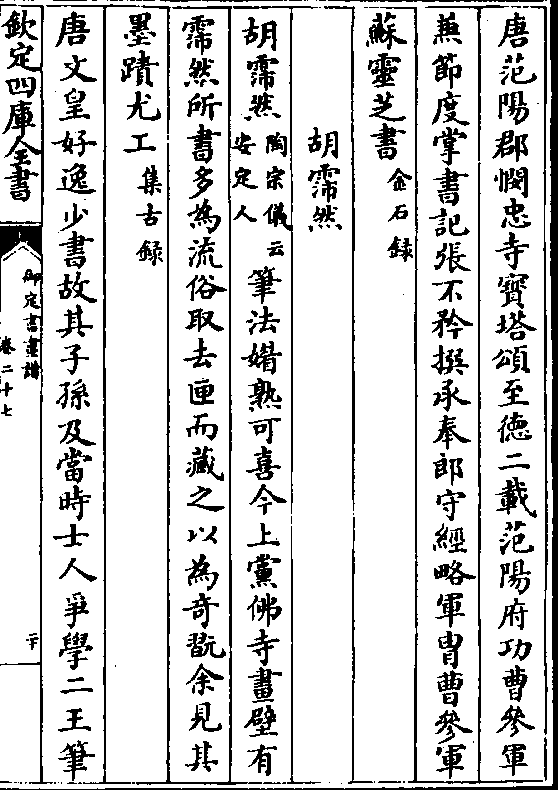 唐范陽郡憫忠寺寶塔頌至德二載范陽府功曹參軍
兼節度掌書記張不矜撰承奉郎守經略軍胄曹參軍
蘇靈芝書金石録
胡霈然
胡霈然陶宗儀云安定人筆法媚熟可喜今上黨佛寺畫壁有
霈然所書多為流俗取去匣而藏之以為奇翫余見其
墨蹟尤工集古録
唐文皇好逸少書故其子孫及當時士人爭學二王筆
欽定四庫全書
御定書畫譜
卷二十七
二十